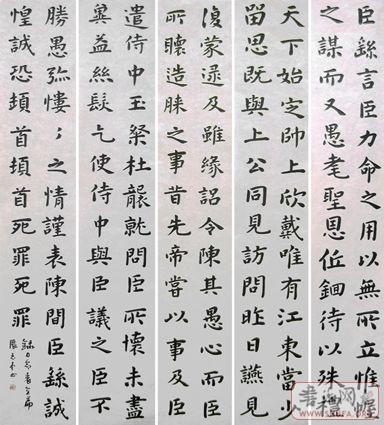 臣繇言臣力命之用以無所立惟幄
之謀而又愚耄聖恩低徊待以殊禮
天下始定帥土欣戴唯有江東當少
留思既與上公同見訪問昨日讌見
復蒙逮及雖緣詔令陳其愚心而臣
所懷造膝之事昔先帝嘗以事及臣
遣侍中王粲杜襲就問臣所懷未盡
冀益絲髮乞使侍中與臣議之臣不
勝愚款慺〻之情謹表陳聞臣繇誠
惶誠恐頓首頓首死罪死罪